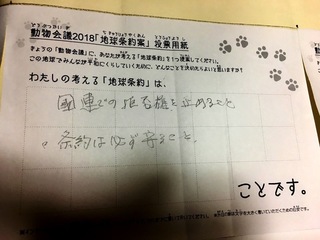 どうぶつかいぎ
ちきゅうじょうやくあん
とうひょうようし
動物会議2018「地球条約案」投票用紙
きょうの「動物会議」に、あなたが考える「地球条約」を1つ提案してください。
この地球でみんなが平和にくらしていくために、どんなことを決めたらよいと思いますか?
わたしの考える「地球条約」は、
国連での拒否権を止めること
。条約は必ず守ること。
ことです。